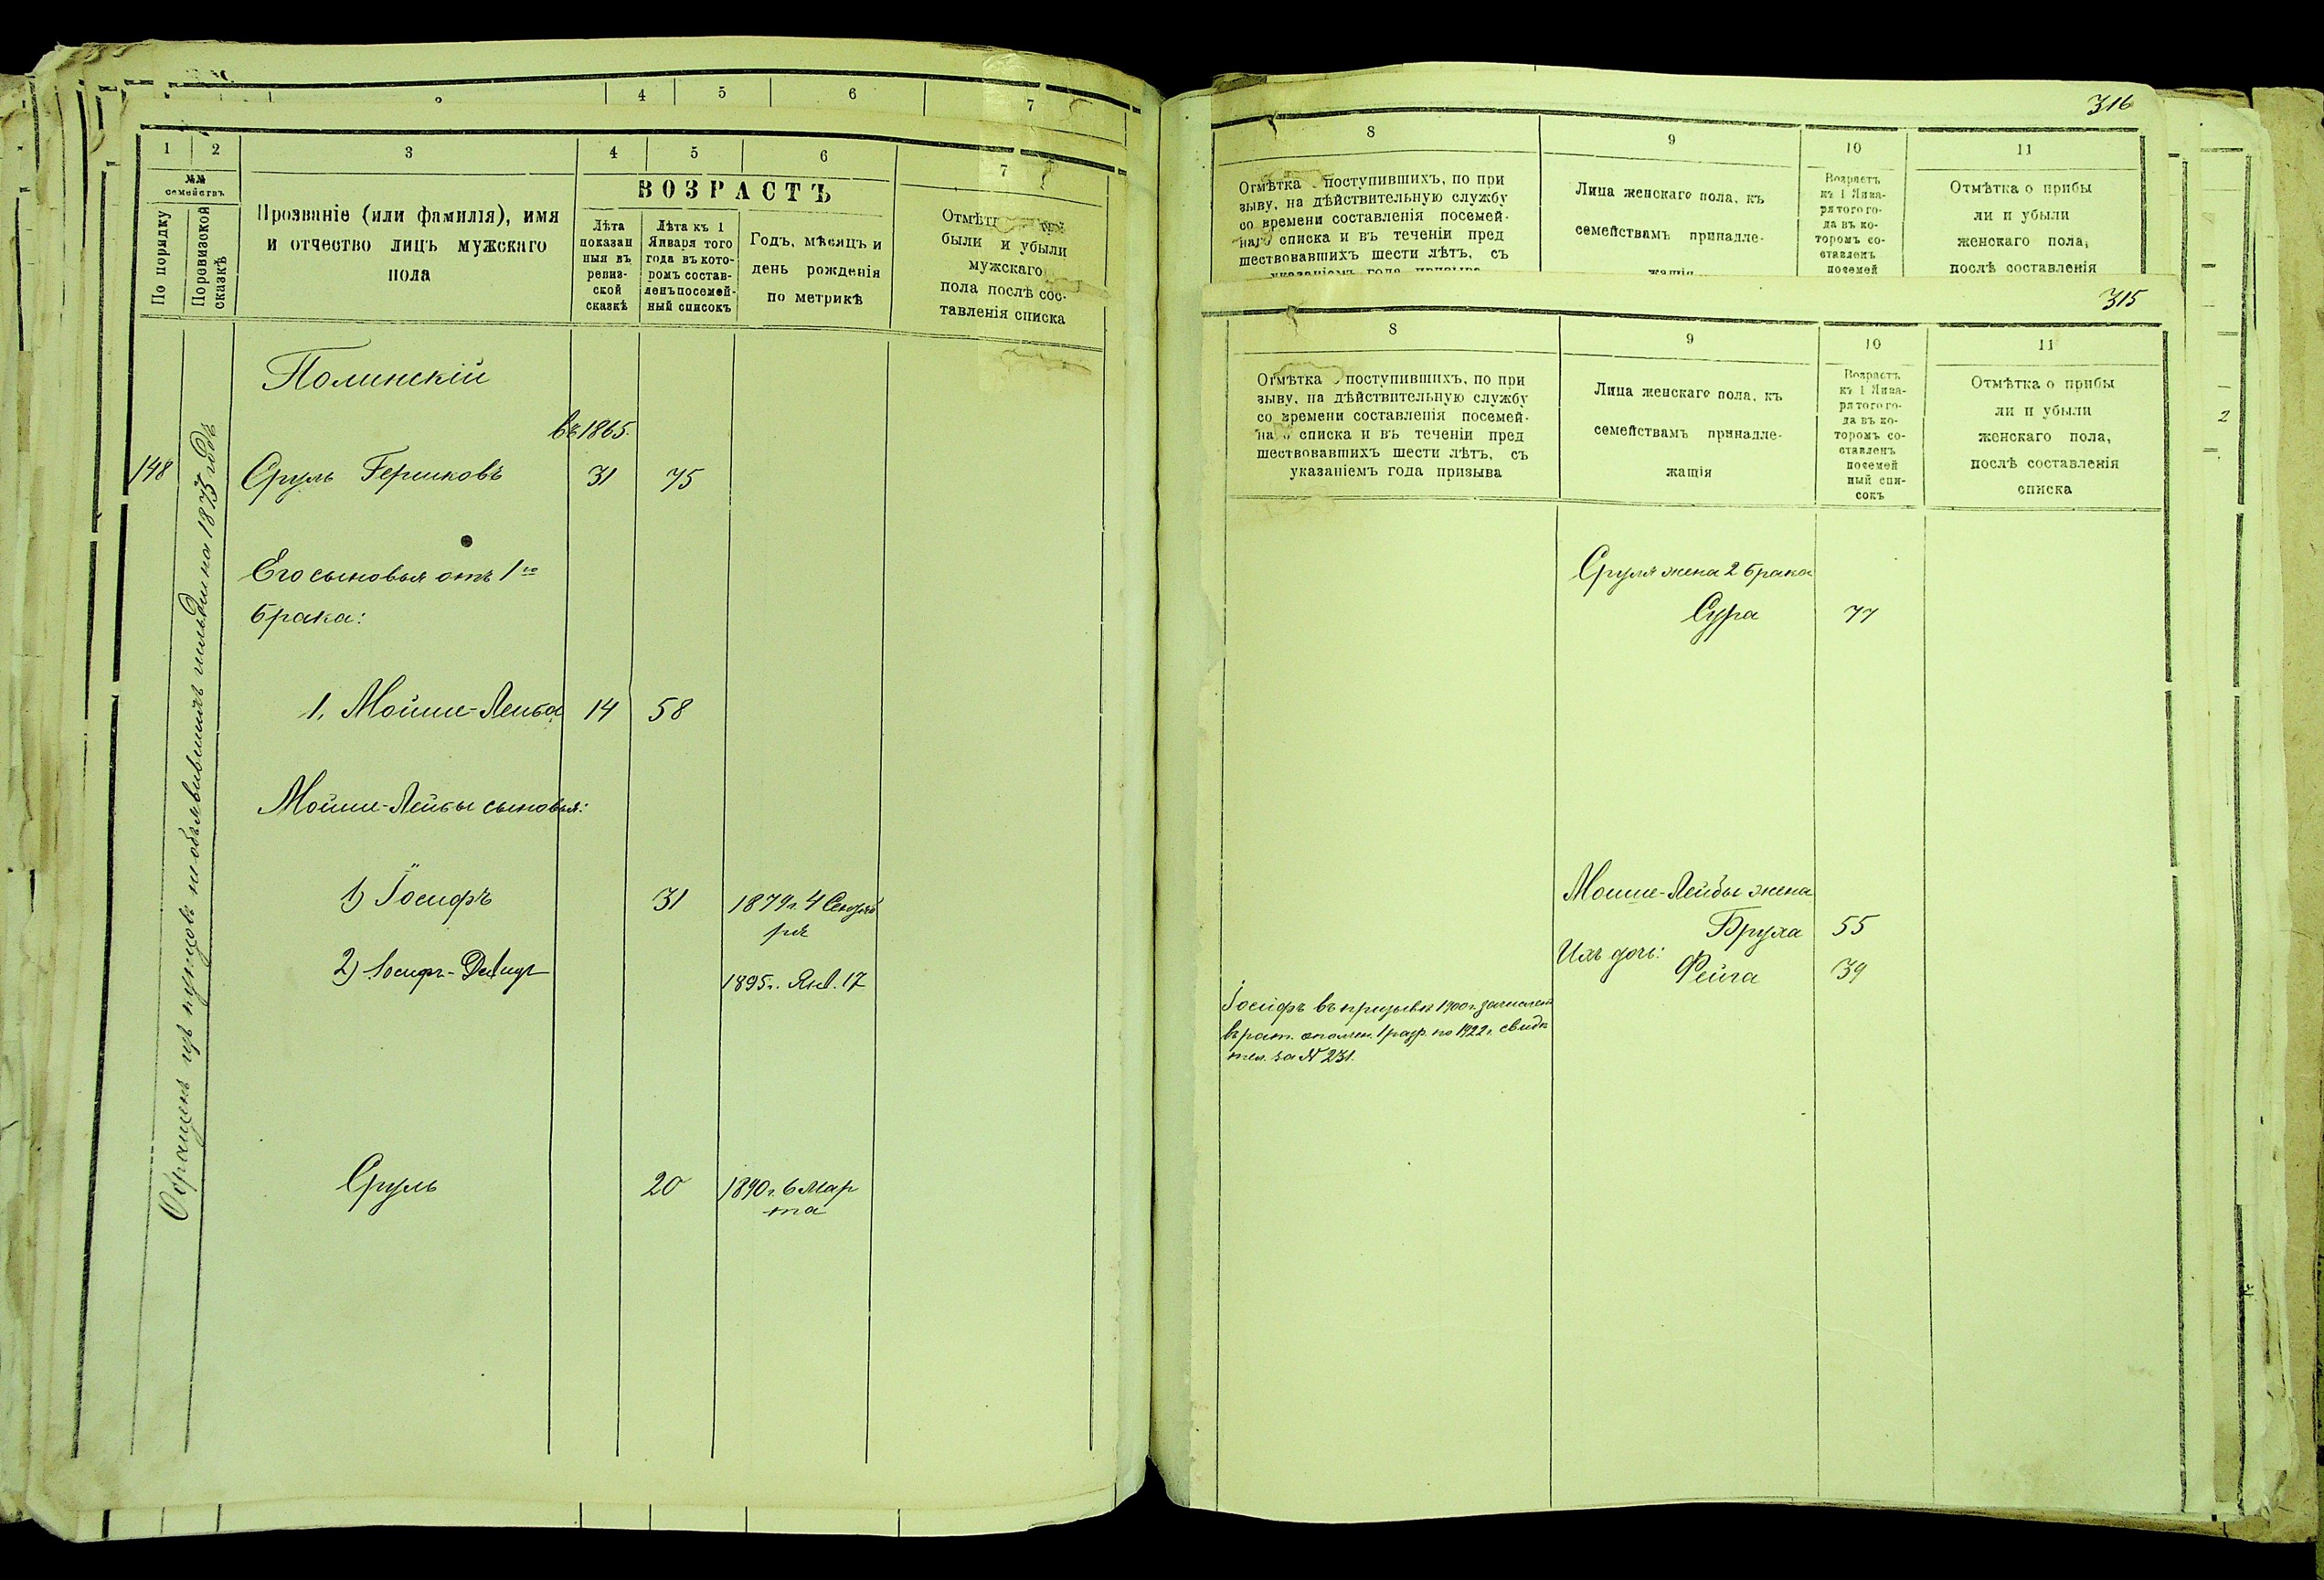 4 5 6 7
1 2 3 4 5 6 7
№№
семействъ
По порядку
По ревизской
сказкѣ
Прозваніе (или фамилія), имя
и отчество лицъ мужскаго
пола
ВОЗРАСТЪ
Лѣта
показан
ныя въ
ревиз-
ской
сказкѣ
Лѣта къ 1
Января того
года въ кото-
ромъ состав-
ленъ посемей-
ный списокъ
Годъ, мѣсяцъ и
день рожденія
по метрикѣ
были и убыли
мужскаго
пола послѣ сос-
тавленія списка
Обращенъ изъ купцовъ не объявившихъ гильдіи на 1875 годъ
Полинскій
въ 1865.
148 Сруль Гершковъ 31 75
Его сыновья отъ 1го
брака:
1, Мойше-Лейба 14 58
Мойше-Лейбы сыновья:
1) Іосифъ 31 1879г. 4 Сентяб
ря
2) Іосифъ-Давидъ 1895г. Янв. 17
Сруль 20 1890г. 6 Мар
та
316
8 9 10 11
Отмѣтка поступившихъ, по при
зыву, на дѣйствительную службу
со времени составленія посемей-
наго списка и въ теченіи пред
шествовавшихъ шести лѣтъ, съ
указаніемъ года призыва
Лица женскаго пола, къ
семействамъ принадле-
жащія
Возрастъ
къ 1 Янва-
ря того го-
да въ ко-
торомъ со-
ставленъ
посемей
Отмѣтка о прибы
ли и убыли
женскаго пола,
послѣ составленія
315
8 9 10 11
Отмѣтка поступившихъ, по при
зыву, на дѣйствительную службу
со времени составленія посемей-
на о списка и въ теченіи пред
шествовавшихъ шести лѣтъ, съ
указаніемъ года призыва
Лица женскаго пола, къ
семействамъ принадле-
жащія
Возрастъ
къ 1 Янва-
ря того го-
да въ ко-
торомъ со-
ставленъ
посемей
ный спи-
сокъ
Отмѣтка о прибы
ли и убыли
женскаго пола,
послѣ составленія
списка
2
Сруля жена 2 брака
Сура 77
Мойше-Лейбы жена
Бруха 55
Ихъ дочь:
Фейга 39
Іосифъ въ призывѣ 1900г. зачисленъ
въ рат. ополчен. 1 разр. по 1922г. свидѣ
тел. за № 231.